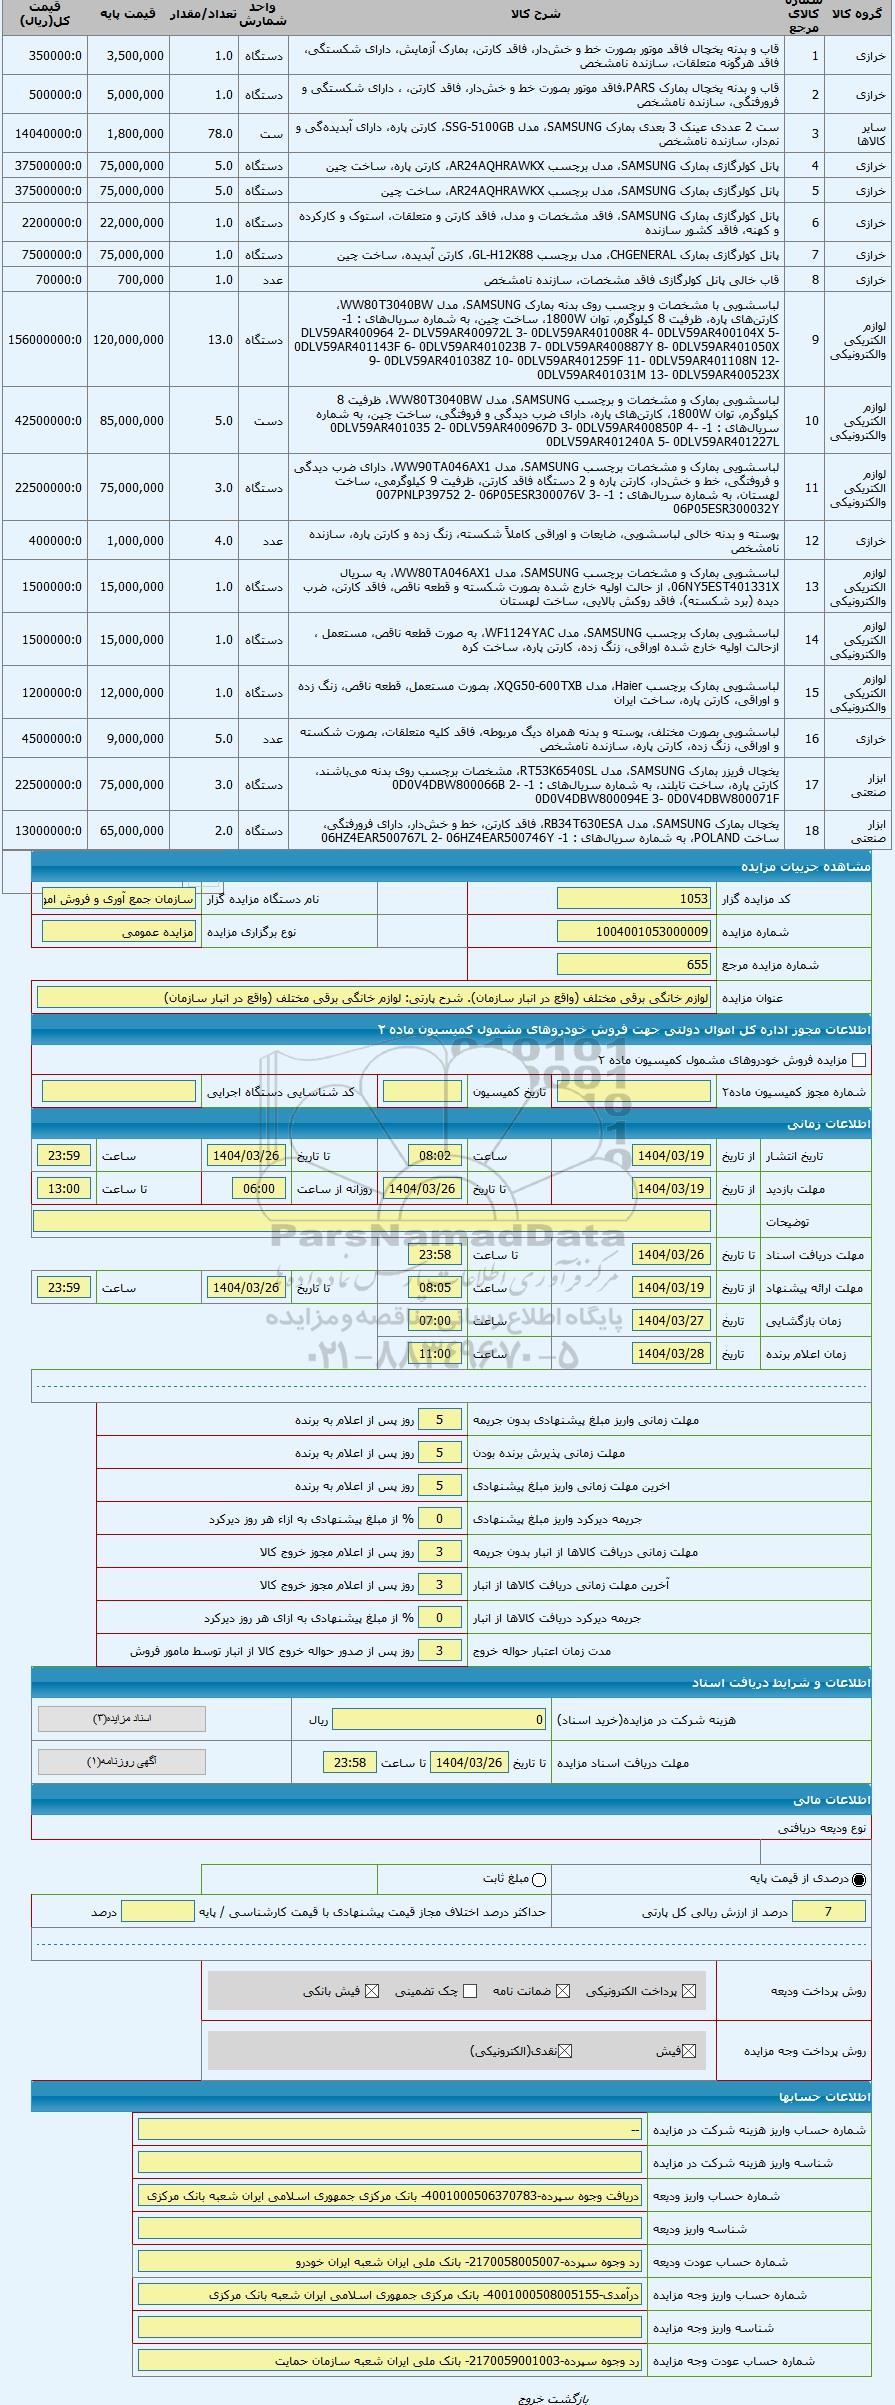 گروه کالا شماره کالای مرجع شرح کالا واحد شمارش تعداد/مقدار قیمت پایه قیمت کل(ریال)
خرازی 1 قاب و بدنه یخچال فاقد موتور بصورت خط و خش‌دار، فاقد کارتن، بمارک آزمایش، دارای شکستگی، فاقد هرگونه متعلقات، سازنده نامشخص دستگاه 1.0 3,500,000 350000:0
خرازی 2 قاب و بدنه یخچال بمارک PARS،فاقد موتور بصورت خط و خش‌دار، فاقد کارتن، ، دارای شکستگی و فرورفتگی، سازنده نامشخص دستگاه 1.0 5,000,000 500000:0
سایر کالاها 3 ست 2 عددی عینک 3 بعدی بمارک SAMSUNG، مدل SSG-5100GB، کارتن پاره، دارای آبدیده‌گی و نم‌دار، سازنده نامشخص ست 78.0 1,800,000 14040000:0
خرازی 4 پانل کولرگازی بمارک SAMSUNG، مدل برچسب AR24AQHRAWKX، کارتن پاره، ساخت چین دستگاه 5.0 75,000,000 37500000:0
خرازی 5 پانل کولرگازی بمارک SAMSUNG، مدل برچسب AR24AQHRAWKX، ساخت چین دستگاه 5.0 75,000,000 37500000:0
خرازی 6 پانل کولرگازی بمارک SAMSUNG، فاقد مشخصات و مدل، فاقد کارتن و متعلقات، استوک و کارکرده و کهنه، فاقد کشور سازنده دستگاه 1.0 22,000,000 2200000:0
خرازی 7 پانل کولرگازی بمارک CHGENERAL، مدل برچسب GL-H12K88، کارتن آبدیده، ساخت چین دستگاه 1.0 75,000,000 7500000:0
خرازی 8 قاب خالی پانل کولرگازی فاقد مشخصات، سازنده نامشخص عدد 1.0 700,000 70000:0
لوازم الکتریکی والکترونیکی 9 لباسشویی با مشخصات و برچسب روی بدنه بمارک SAMSUNG، مدل WW80T3040BW، کارتن‌های پاره، ظرفیت 8 کیلوگرم، توان 1800W، ساخت چین، به شماره سریال‌های : 1-
DLV59AR400964 2- DLV59AR400972L 3- 0DLV59AR401008R 4- 0DLV59AR400104X 5-
0DLV59AR401143F 6- 0DLV59AR401023B 7- 0DLV59AR400887Y 8- 0DLV59AR401050X
9- 0DLV59AR401038Z 10- 0DLV59AR401259F 11- 0DLV59AR401108N 12-
0DLV59AR401031M 13- 0DLV59AR400523X دستگاه 13.0 120,000,000 156000000:0
لوازم الکتریکی والکترونیکی 10 لباسشویی بمارک و مشخصات و برچسب SAMSUNG، مدل WW80T3040BW، ظرفیت 8 کیلوگرم، توان 1800W، کارتن‌های پاره، دارای ضرب دیدگی و فروفتگی، ساخت چین، به شماره
سریال‌های : 1- 0DLV59AR401035 2- 0DLV59AR400967D 3- 0DLV59AR400850P 4-
0DLV59AR401240A 5- 0DLV59AR401227L دست 5.0 85,000,000 42500000:0
لوازم الکتریکی والکترونیکی 11 لباسشویی بمارک و مشخصات برچسب SAMSUNG، مدل WW90TA046AX1، دارای ضرب دیدگی و فروفتگی، خط و خش‌دار، کارتن پاره و 2 دستگاه فاقد کارتن، ظرفیت 9 کیلوگرمی، ساخت
لهستان، به شماره سریال‌های : 1- 007PNLP39752 2- 06P05ESR300076V 3-
06P05ESR300032Y دستگاه 3.0 75,000,000 22500000:0
خرازی 12 پوسته و بدنه خالی لباسشویی، ضایعات و اوراقی کاملاً شکسته، زنگ زده و کارتن پاره، سازنده نامشخص عدد 4.0 1,000,000 400000:0
لوازم الکتریکی والکترونیکی 13 لباسشویی بمارک و مشخصات برچسب SAMSUNG، مدل WW80TA046AX1، به سریال 06NY5EST401331X، از حالت اولیه خارج شده بصورت شکسته و قطعه ناقص، فاقد کارتن، ضرب دیده (برد شکسته)، فاقد روکش بالایی، ساخت لهستان دستگاه 1.0 15,000,000 1500000:0
لوازم الکتریکی والکترونیکی 14 لباسشویی بمارک برچسب SAMSUNG، مدل WF1124YAC، به صورت قطعه ناقص، مستعمل ، ازحالت اولیه خارج شده اوراقی، زنگ زده، کارتن پاره، ساخت کره دستگاه 1.0 15,000,000 1500000:0
لوازم الکتریکی والکترونیکی 15 لباسشویی بمارک برچسب Haier، مدل XQG50-600TXB، بصورت مستعمل، قطعه ناقص، زنگ زده و اوراقی، کارتن پاره، ساخت ایران دستگاه 1.0 12,000,000 1200000:0
خرازی 16 لباسشویی بصورت مختلف، پوسته و بدنه همراه دیگ مربوطه، فاقد کلیه متعلقات، بصورت شکسته و اوراقی، زنگ زده، کارتن پاره، سازنده نامشخص عدد 5.0 9,000,000 4500000:0
ابزار صنعتی 17 یخچال فریزر بمارک SAMSUNG، مدل RT53K6540SL، مشخصات برچسب روی بدنه می‌باشند، کارتن پاره، ساخت تایلند، به شماره سریال‌های : 1- 0D0V4DBW800066B 2-
0D0V4DBW800094E 3- 0D0V4DBW800071F دستگاه 3.0 75,000,000 22500000:0
ابزار صنعتی 18 یخچال بمارک SAMSUNG، مدل RB34T630ESA، فاقد کارتن، خط و خش‌دار، دارای فرورفتگی، ساخت POLAND، به شماره سریال‌های : 1- 06HZ4EAR500767L 2- 06HZ4EAR500746Y دستگاه 2.0 65,000,000 13000000:0
مشاهده جزییات مزایده
کد مزایده گزار 1053 نام دستگاه مزایده گزار سازمان جمع آوری و فروش امو
شماره مزایده 1004001053000009 نوع برگزاری مزایده مزایده عمومی
شماره مزایده مرجع 655
عنوان مزایده لوازم خانگی برقی مختلف (واقع در انبار سازمان). شرح پارتی: لوازم خانگی برقی مختلف (واقع در انبار سازمان)
اطلاعات مجوز اداره کل اموال دولتی جهت فروش خودروهای مشمول کمیسیون ماده ۲
مزایده فروش خودروهای مشمول کمیسیون ماده ۲
شماره مجوز کمیسیون ماده۲ تاریخ کمیسیون کد شناسایی دستگاه اجرایی
اطلاعات زمانی
تاریخ انتشار از تاریخ 1404/03/19 ساعت 08:02 تا تاریخ 1404/03/26 ساعت 23:59
مهلت بازدید از تاریخ 1404/03/19 تا تاریخ 1404/03/26 روزانه از ساعت 06:00 تا ساعت 13:00
توضیحات
ParsNamadData
مهلت دریافت اسناد تا تاریخ 1404/03/26 تا ساعت 23:58
مرکز فرآوری اطلاعات پارس نماد داده ها
مهلت ارائه پیشنهاد از تاریخ 1404/03/19 ساعت 08:05 تا تاریخ 1404/03/26 ساعت 23:59
پایگاه اطلاع رسانی مناقصه و مزایده
زمان بازگشایی تاریخ 1404/03/27 ساعت 07:00
زمان اعلام برنده تاریخ 1404/03/28 ساعت 11:00
۰۲۱-۸۸۳۴۹۶۷۰-۵
مهلت زمانی واریز مبلغ پیشنهادی بدون جریمه 5 روز پس از اعلام به برنده
مهلت زمانی پذیرش برنده بودن 5 روز پس از اعلام به برنده
اخرین مهلت زمانی واریز مبلغ پیشنهادی 5 روز پس از اعلام به برنده
جریمه دیرکرد واریز مبلغ پیشنهادی 0 % از مبلغ پیشنهادی به ازاء هر روز دیرکرد
مهلت زمانی دریافت کالاها از انبار بدون جریمه 3 روز پس از اعلام مجوز خروج کالا
آخرین مهلت زمانی دریافت کالاها از انبار 3 روز پس از اعلام مجوز خروج کالا
جریمه دیرکرد دریافت کالاها از انبار 0 % از مبلغ پیشنهادی به ازای هر روز دیرکرد
مدت زمان اعتبار حواله خروج 3 روز پس از صدور حواله خروج کالا از انبار توسط مامور فروش
اطلاعات و شرایط دریافت اسناد
هزینه شرکت در مزایده(خرید اسناد) 0 ریال اسناد مزایده(۳)
مهلت دریافت اسناد مزایده تا تاریخ 1404/03/26 تا ساعت 23:58 آگهی روزنامه(۱)
اطلاعات مالی
نوع ودیعه دریافتی
درصدی از قیمت پایه مبلغ ثابت
7 درصد از ارزش ریالی کل پارتی حداکثر درصد اختلاف مجاز قیمت پیشنهادی با قیمت کارشناسی / پایه درصد
روش پرداخت ودیعه پرداخت الکترونیکی ضمانت نامه چک تضمینی فیش بانکی
روش پرداخت وجه مزایده فیش نقدی(الکترونیکی)
اطلاعات حسابها
شماره حساب واریز هزینه شرکت در مزایده --
شناسه واریز هزینه شرکت در مزایده
شماره حساب واریز ودیعه دریافت وجوه سپرده-4001000506370783- بانک مرکزی جمهوری اسلامی ایران شعبه بانک مرکزی
شناسه واریز ودیعه
شماره حساب عودت ودیعه رد وجوه سپرده-2170058005007- بانک ملی ایران شعبه ایران خودرو
شماره حساب واریز وجه مزایده درآمدی-4001000508005155- بانک مرکزی جمهوری اسلامی ایران شعبه بانک مرکزی
شناسه واریز وجه مزایده
شماره حساب عودت وجه مزایده رد وجوه سپرده-2170059001003- بانک ملی ایران شعبه سازمان حمایت
بازگشت خروج